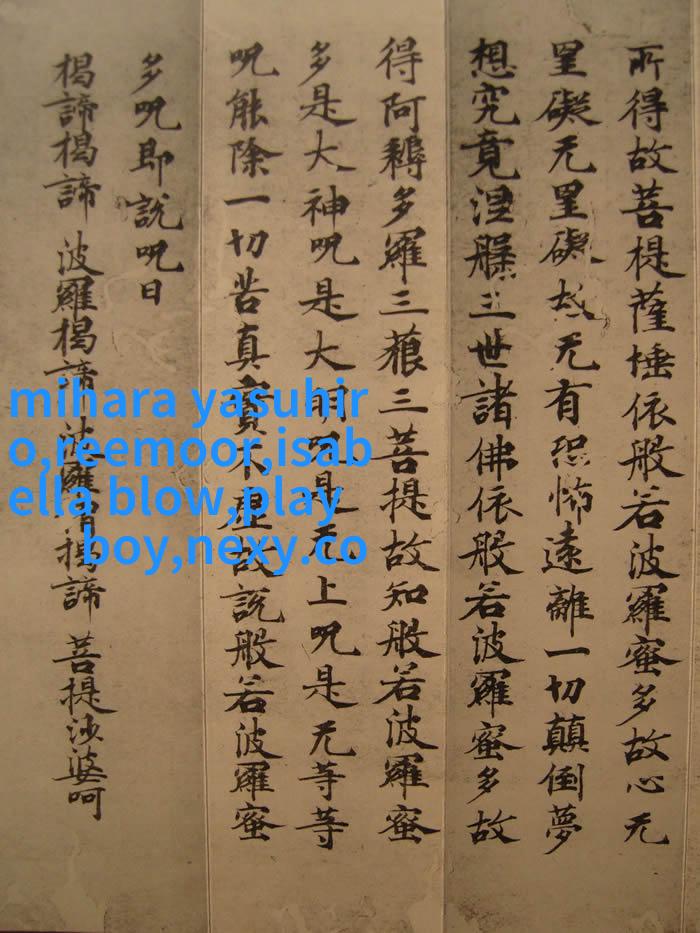 所得故菩提薩埵依般若波羅蜜多故心无
罣礙无罣礙故无有恐怖遠離一切顛倒夢
想究竟涅槃三世諸佛依般若波羅蜜多故
得阿耨多羅三藐三菩提故知般若波羅蜜
多是大神呪是大明呪是无上呪是无等等
呪能除一切苦真實不虛故說般若波羅蜜
多呪即說呪曰
揭諦揭諦 波羅揭諦 波羅僧揭諦 菩提沙婆呵
mihara yasuhir
o,reemoor,isab
ella blow,play
boy,nexy.co